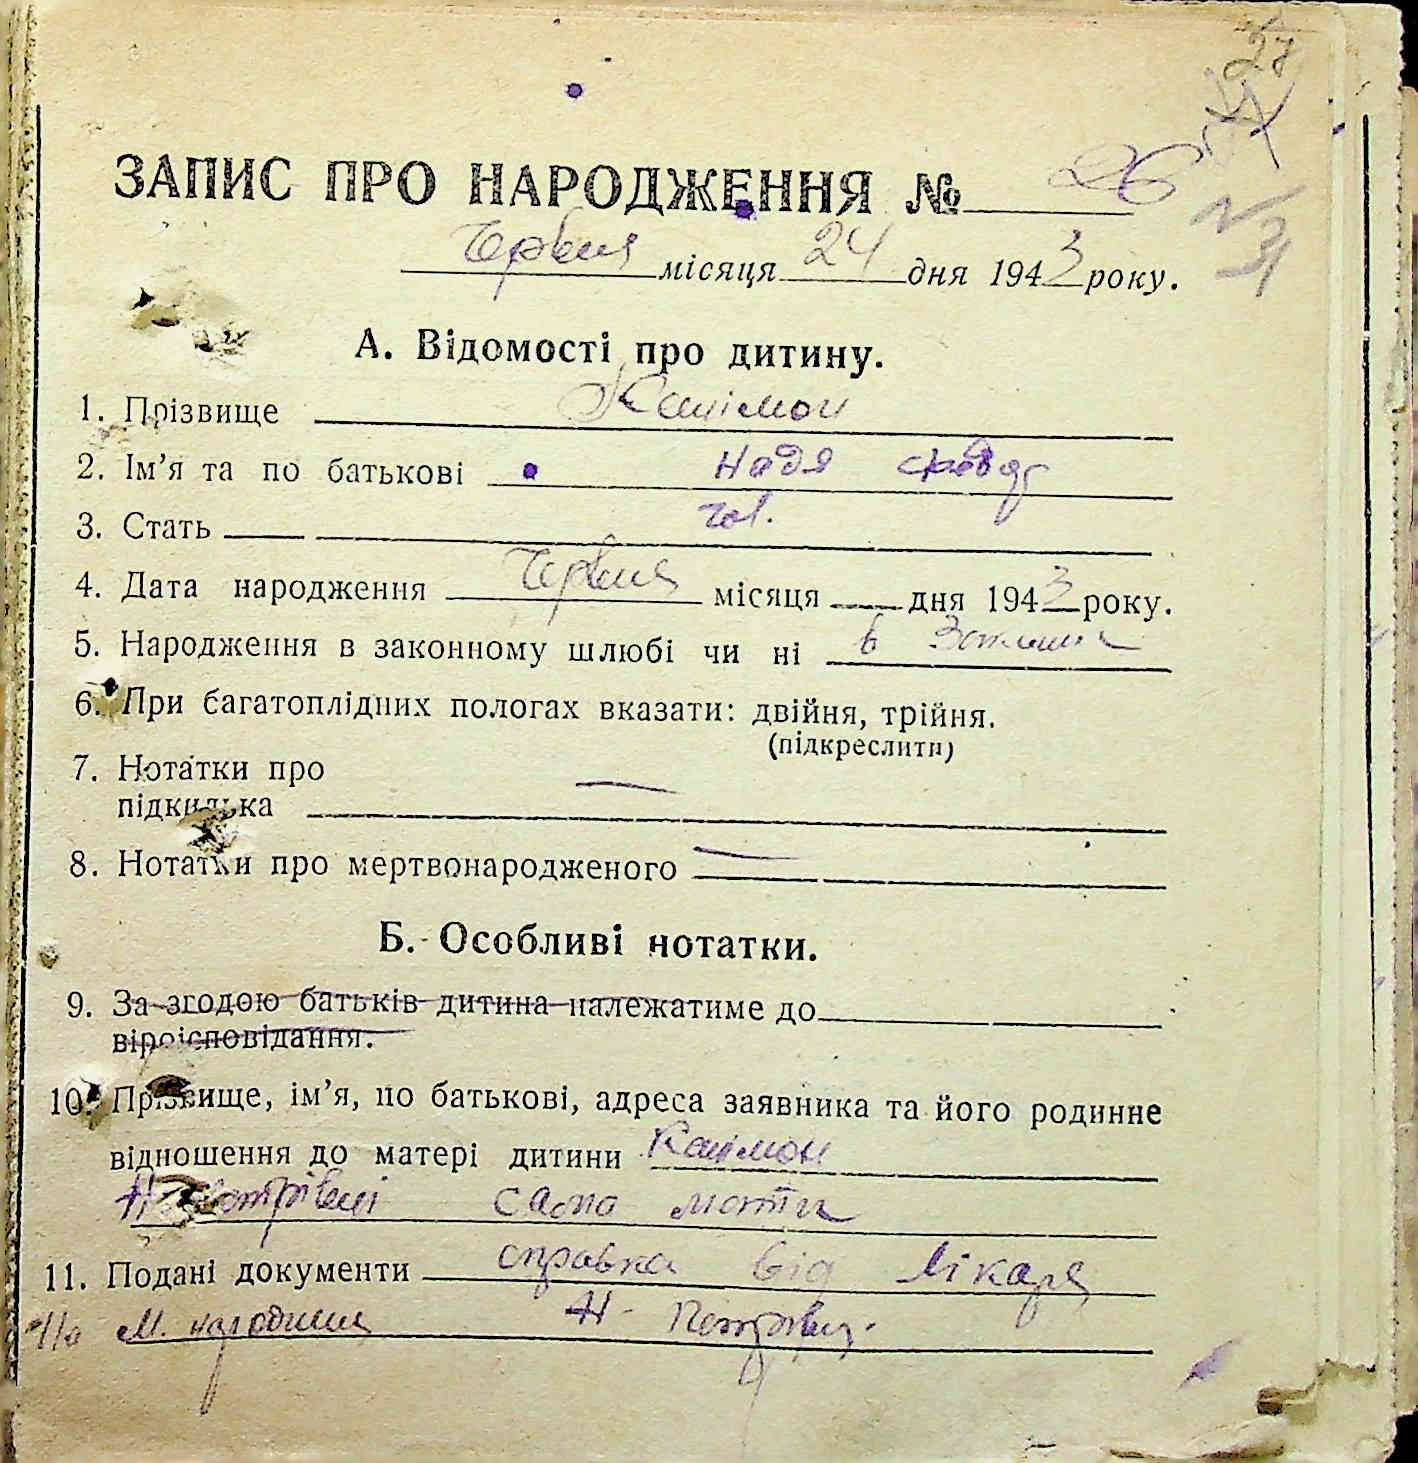 27
ЗАПИС ПРО НАРОДЖЕННЯ № 26
N 31
Червня місяця 24 дня 1943 року.
А. Відомості про дитину.
1. Прізвище Калімон
2. Ім'я та по батькові Надя
3. Стать
4. Дата народження Червня місяця дня 1943 року.
5. Народження в законному шлюбі чи ні в
6. При багатоплідних пологах вказати: двійня, трійня.
(підкреслити)
7. Нотатки про
підкидька —
8. Нотатки про мертвонародженого —
Б. Особливі нотатки.
9. За згодою батьків дитина належатиме до
віроісповідання.
10. Прізвище, ім'я, по батькові, адреса заявника та його родинне
відношення до матері дитини Калімон
сама мати
11. Подані документи справка від лікаря
Н-Петрівці.